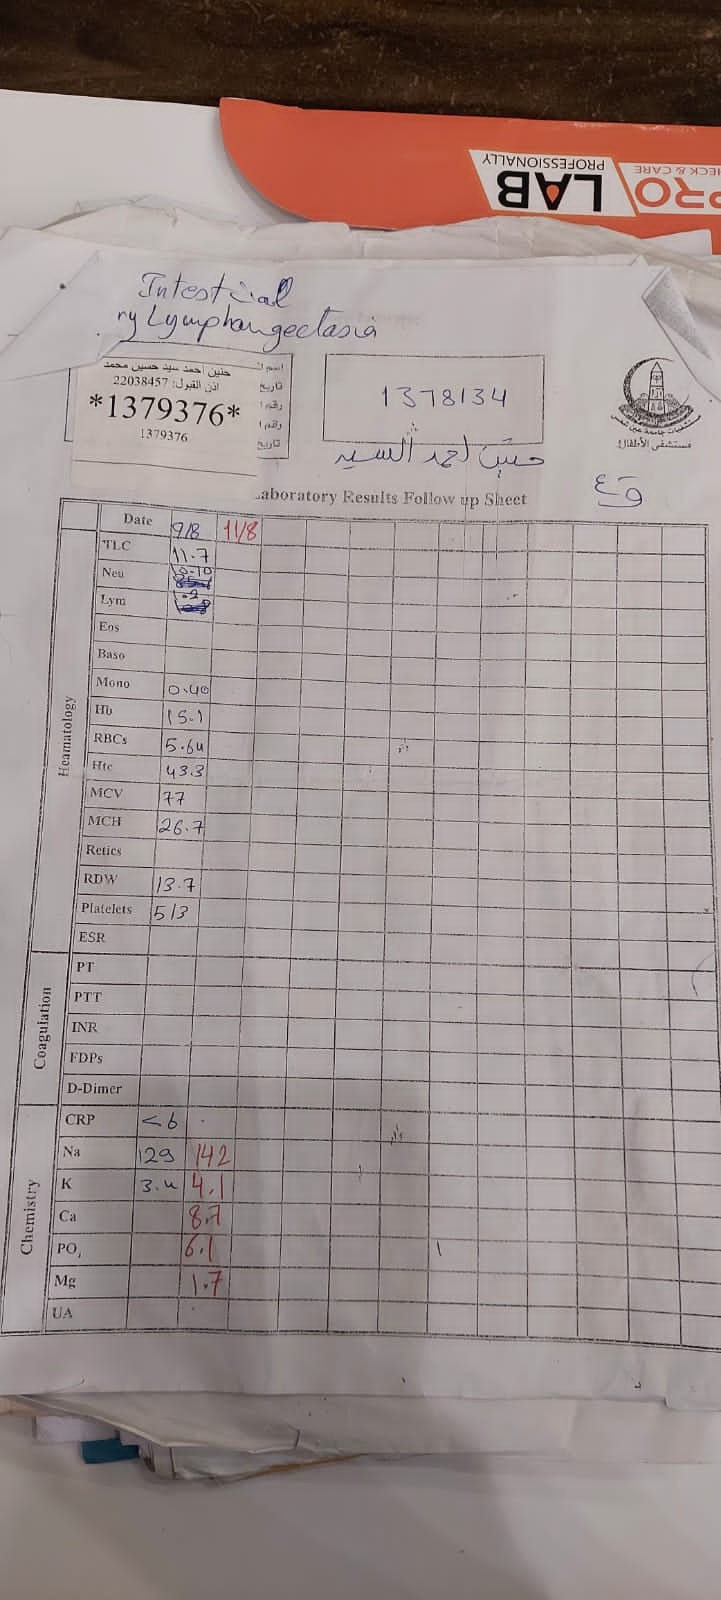 PRO LAB
CHECK & CARE PROFESSIONALLY
Intestinal
ry Lymphangectasia
حنين احمد سيد حسين محمد
اذن القبول: 22038457
*1379376*
1379376
تاريخ
رقم
رقم
تاريخ
1378134
احمد السيد
مستشفيات جامعة عين شمس
مستشفى الأطفال
Laboratory Results Follow up Sheet
Date 9/8 11/8
Heamatology
TLC 11.7
Neu
Lym
Eos
Baso
Mono 0.40
Hb 15.1
RBCs 5.64
Htc 43.3
MCV 77
MCH 26.7
Retics
RDW 13.7
Platelets 513
ESR
Coagulation
PT
PTT
INR
FDPs
D-Dimer
Chemistry
CRP <6
Na 129 142
K 3.4 4.1
Ca 8.7
PO4 6.1
Mg 1.7
UA